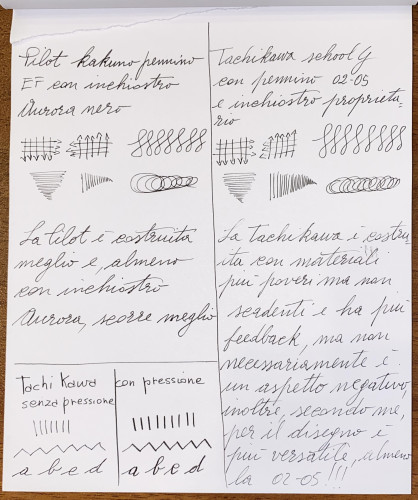 Pilot kakuno pennino
EF con inchiostro
Aurora nero
La Pilot è costruita
meglio e, almeno
con inchiostro
Aurora, scorre meglio
Tachikawa school G
con pennino 02-05
e inchiostro proprieta=
rio
La Tachikawa è costru-
ita con materiali
più poveri ma non
scadenti e ha più
feedback, ma non
necessariamente è
un aspetto negativo,
inoltre, secondo me,
per il disegno è
più versatile, almeno
la 02-05!!!
Tachi Kawa
senza pressione
a b c d
con pressione
a b c d